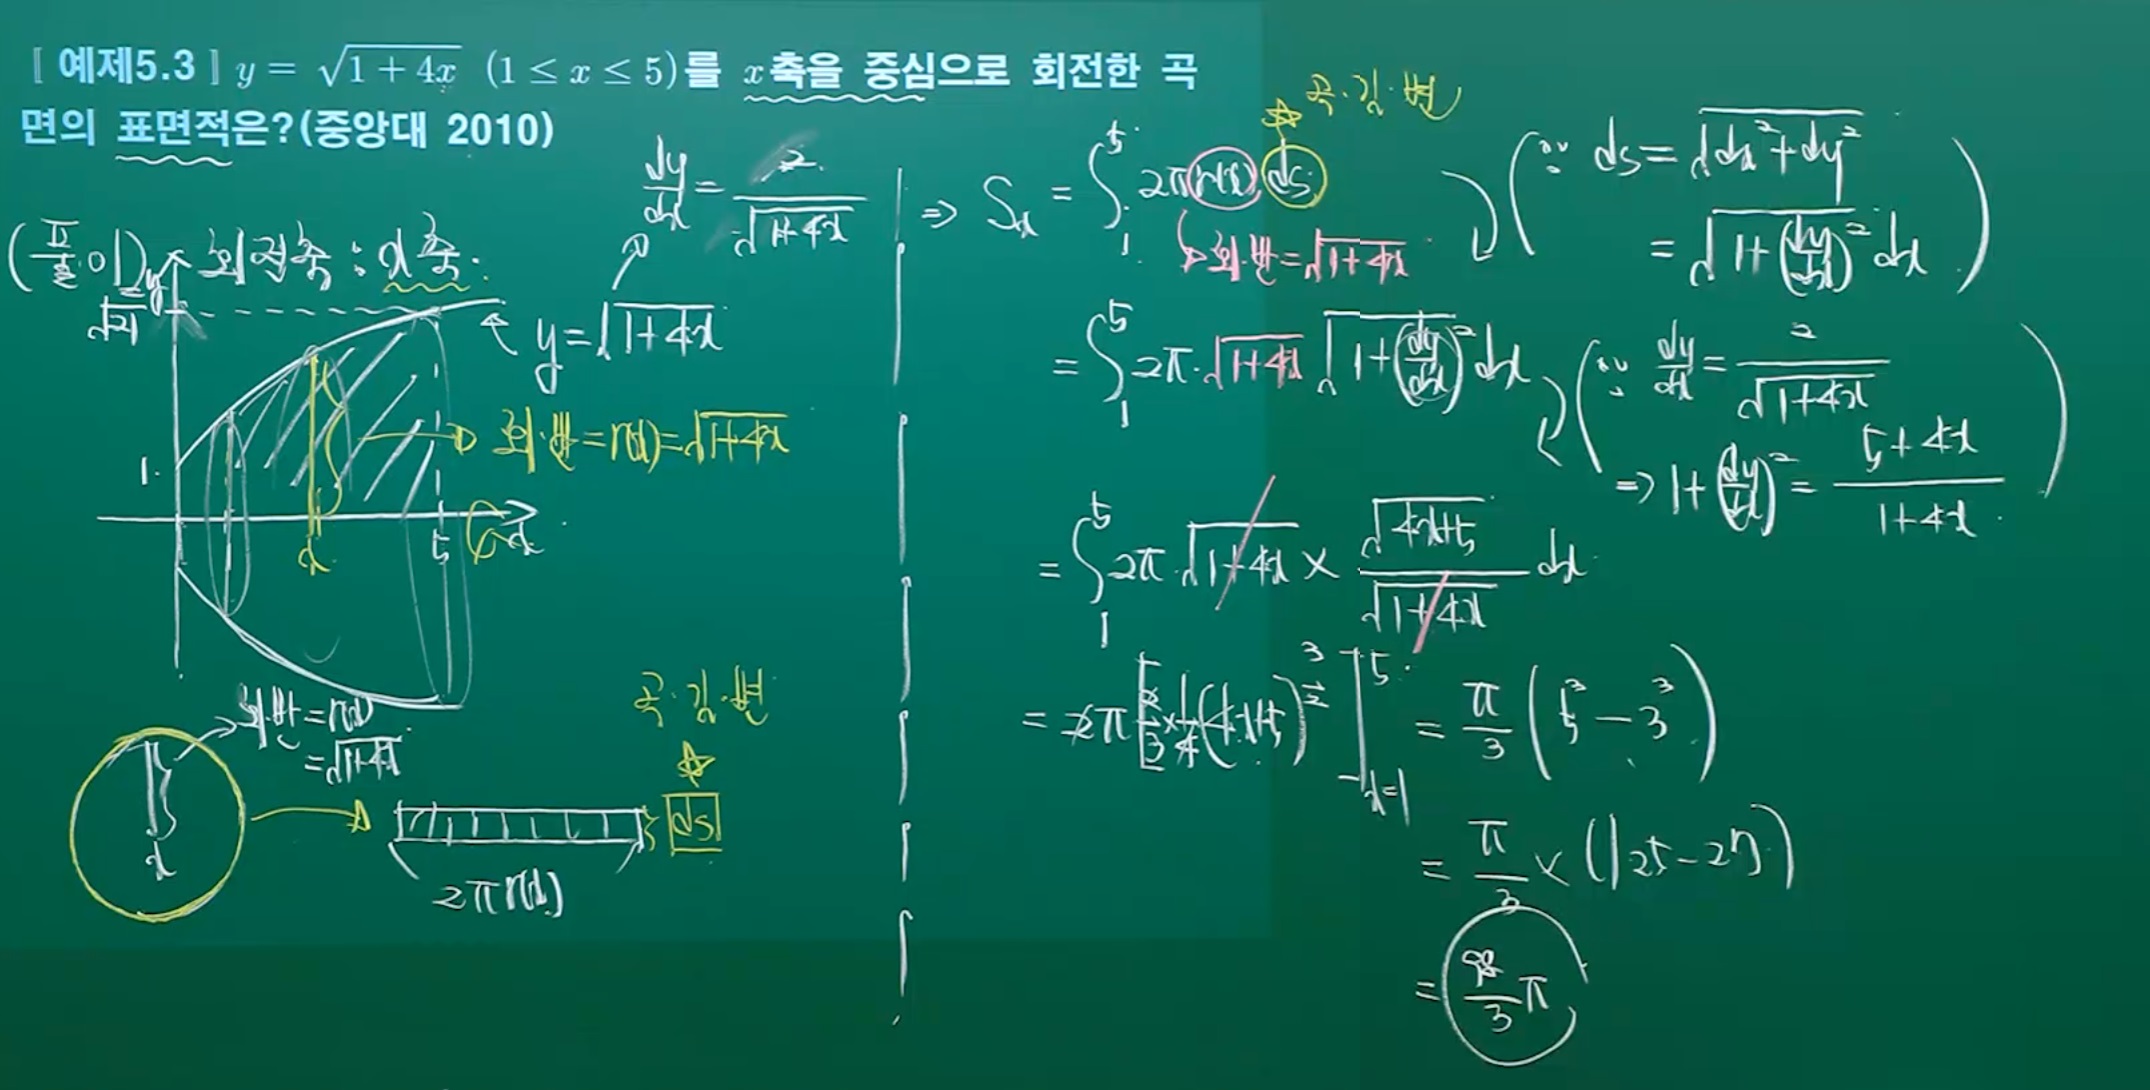 [예제5.3] y = √(1 + 4x) (1 ≤ x ≤ 5)를 x축을 중심으로 회전한 곡
면의 표면적은?(중앙대 2010)
dy/dx = 2/√(1+4x)
(풀이) 회전축 : x축.
y
√21
y = √(1+4x)
1
회·반 = r(x) = √(1+4x)
x
5
x
회·반 = r(x)
= √(1+4x)
x
곡·길·변
ds
2πr(x)
곡·길·변
⇒ Sx = ∫₁⁵ 2πr(x) ds
회·반 = √(1+4x)
(∵ ds = √(dx²+dy²)
= √(1+(dy/dx)²) dx)
= ∫₁⁵ 2π·√(1+4x) √(1+(dy/dx)²) dx
(∵ dy/dx = 2/√(1+4x)
⇒ 1+(dy/dx)² = (5+4x)/(1+4x))
= ∫₁⁵ 2π·√(1+4x) × √(4x+5)/√(1+4x) dx
= 2π[2/3 × 1/4 (4x+5)^(3/2)]⁵ₓ₌₁ = π/3 (5³ − 3³)
= π/3 × (125−27)
= 98/3 π